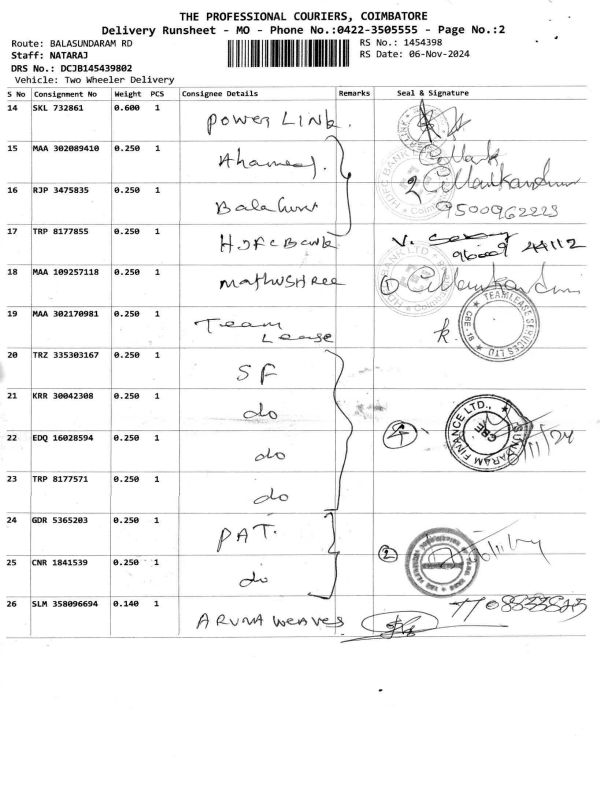 THE PROFESSIONAL COURIERS, COIMBATORE
Delivery Runsheet - MO - Phone No.:0422-3505555 - Page No.:2
Route: BALASUNDARAM RD RS No.: 1454398
Staff: NATARAJ RS Date: 06-Nov-2024
DRS No.: DCJB145439802
Vehicle: Two Wheeler Delivery
S No Consignment No Weight PCS Consignee Details Remarks Seal & Signature
14 SKL 732861 0.600 1 POWER LINK.
15 MAA 302089410 0.250 1 Ahamed.
16 RJP 3475835 0.250 1 2
9500962223
17 TRP 8177855 0.250 1 HDFC Bank V.
44112
18 MAA 109257118 0.250 1 MATHUSHREE 1
19 MAA 302170981 0.250 1 Team Lease TEAMLEASE SERVICES LTD CBE-18
20 TRZ 335303167 0.250 1 SF
21 KRR 30042308 0.250 1 do
22 EDQ 16028594 0.250 1 do 4 SUNDARAM FINANCE LTD., CBE
23 TRP 8177571 0.250 1 do
24 GDR 5365203 0.250 1 PAT.
25 CNR 1841539 0.250 1 do 2
26 SLM 358096694 0.140 1 ARUNA WEAVES